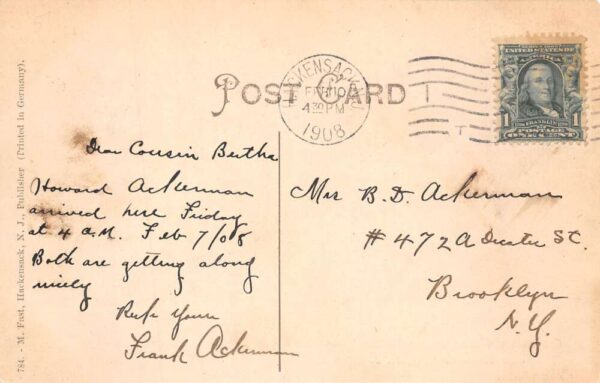 POST CARD
HACKENSACK
FEB 10
4 30 PM
1908
SERIES 1902
UNITED STATES OF AMERICA
FRANKLIN
1 POSTAGE 1
ONE CENT
784. - M. Fast, Hackensack, N. J., Publisher (Printed in Germany).
Dear Cousin Bertha
Howard Ackerman
arrived here Friday
at 4 a.M. Feb 7/08
Both are getting along
nicely
Yours
Frank Ackerman
Mrs B. D. Ackerman
# 472A St.
Brooklyn
N.Y.